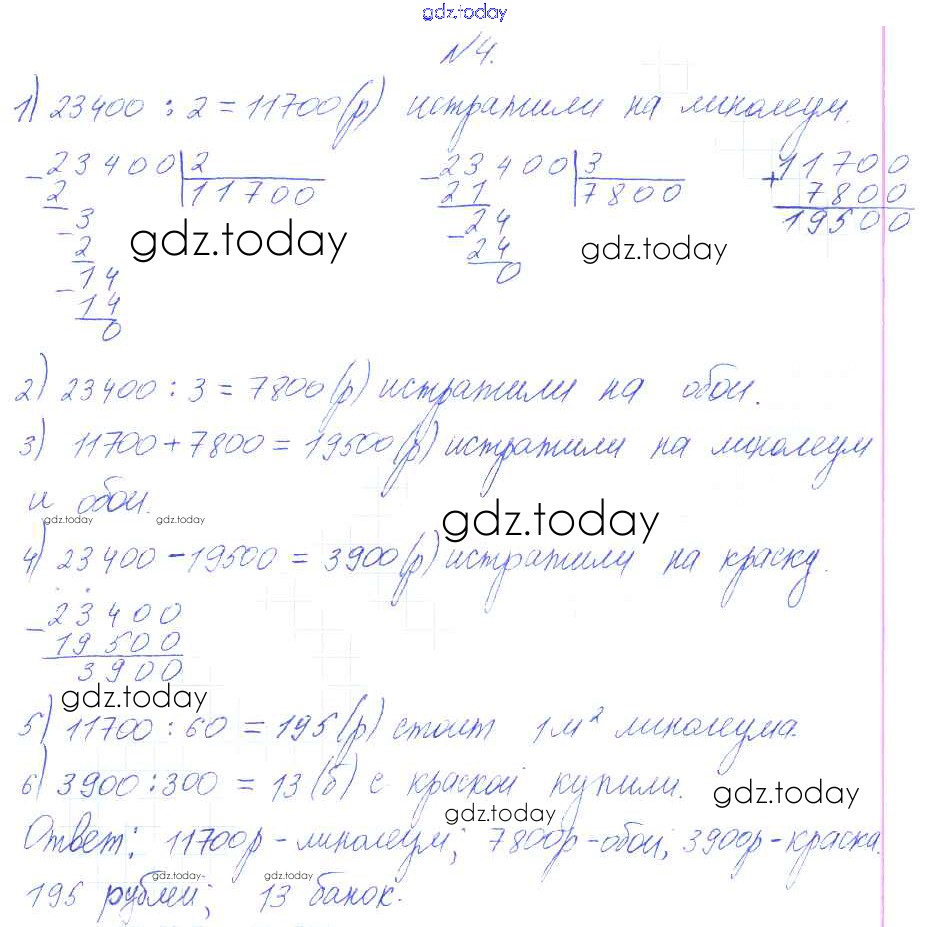 gdz.today
№4.
1) 23400 : 2 = 11700 (р) истратили на линолеум.
- 23400 | 2
2 | 11700
- 3
2
- 14
14
0
- 23400 | 3
21 | 7800
- 24
24
0
+ 11700
7800
19500
gdz.today
gdz.today
2) 23400 : 3 = 7800 (р) истратили на обои.
3) 11700 + 7800 = 19500 (р) истратили на линолеум
и обои.
gdz.today gdz.today
gdz.today
4) 23400 - 19500 = 3900 (р) истратили на краску.
- 23400
19500
3900
gdz.today
5) 11700 : 60 = 195 (р) стоит 1 м² линолеума.
6) 3900 : 300 = 13 (б) с краской купили.
gdz.today
gdz.today
Ответ: 11700р - линолеум; 7800р - обои; 3900р - краска.
gdz.today gdz.today
195 рублей; 13 банок.